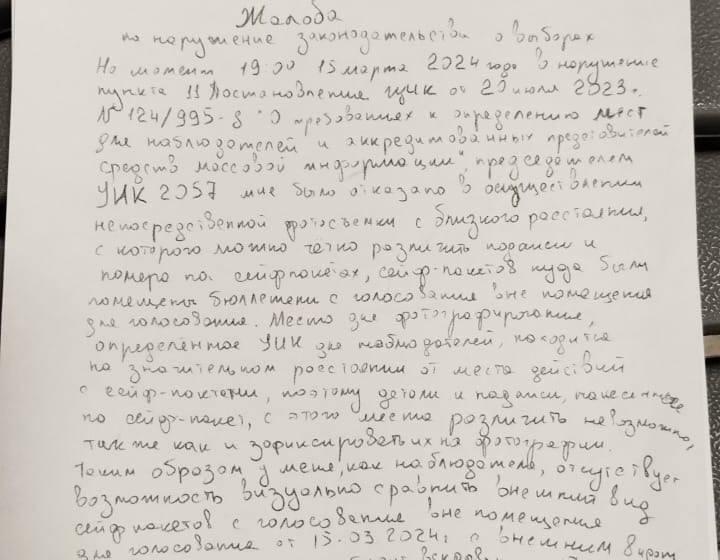 Жалоба
на нарушение законодательства о выборах
На момент 19:00 15 марта 2024 года в нарушение
пункта 11 Постановления ЦИК от 20 июля 2023г.
№ 124/995-8 "О требованиях к определению мест
для наблюдателей и аккредитованных предстовителей
средств массовой информации", председателем
УИК 2057 мне было отказано в осуществлении
непосредственной фотосъемки с близкого расстояния,
с которого можно четко различить подписи и
номера на сейфпакетах, сейф-пакетов куда были
помещены бюллетени с голосования вне помещения
для голосования. Место для фотографирования,
определенное УИК для наблюдателей, находится
на значительном расстоянии от места действий
с сейф-пакетами, поэтому детали и надписи, нанесенные
на сейф-пакет, с этого места различить невозможно,
так же как и зафиксировать их на фотографии.
Таким образом у меня, как наблюдателя, отсутствует
возможность визуально сравнить внешний вид
сейф пакетов с голосования вне помещения
для голосования от 15.03.2024г. с внешним видом